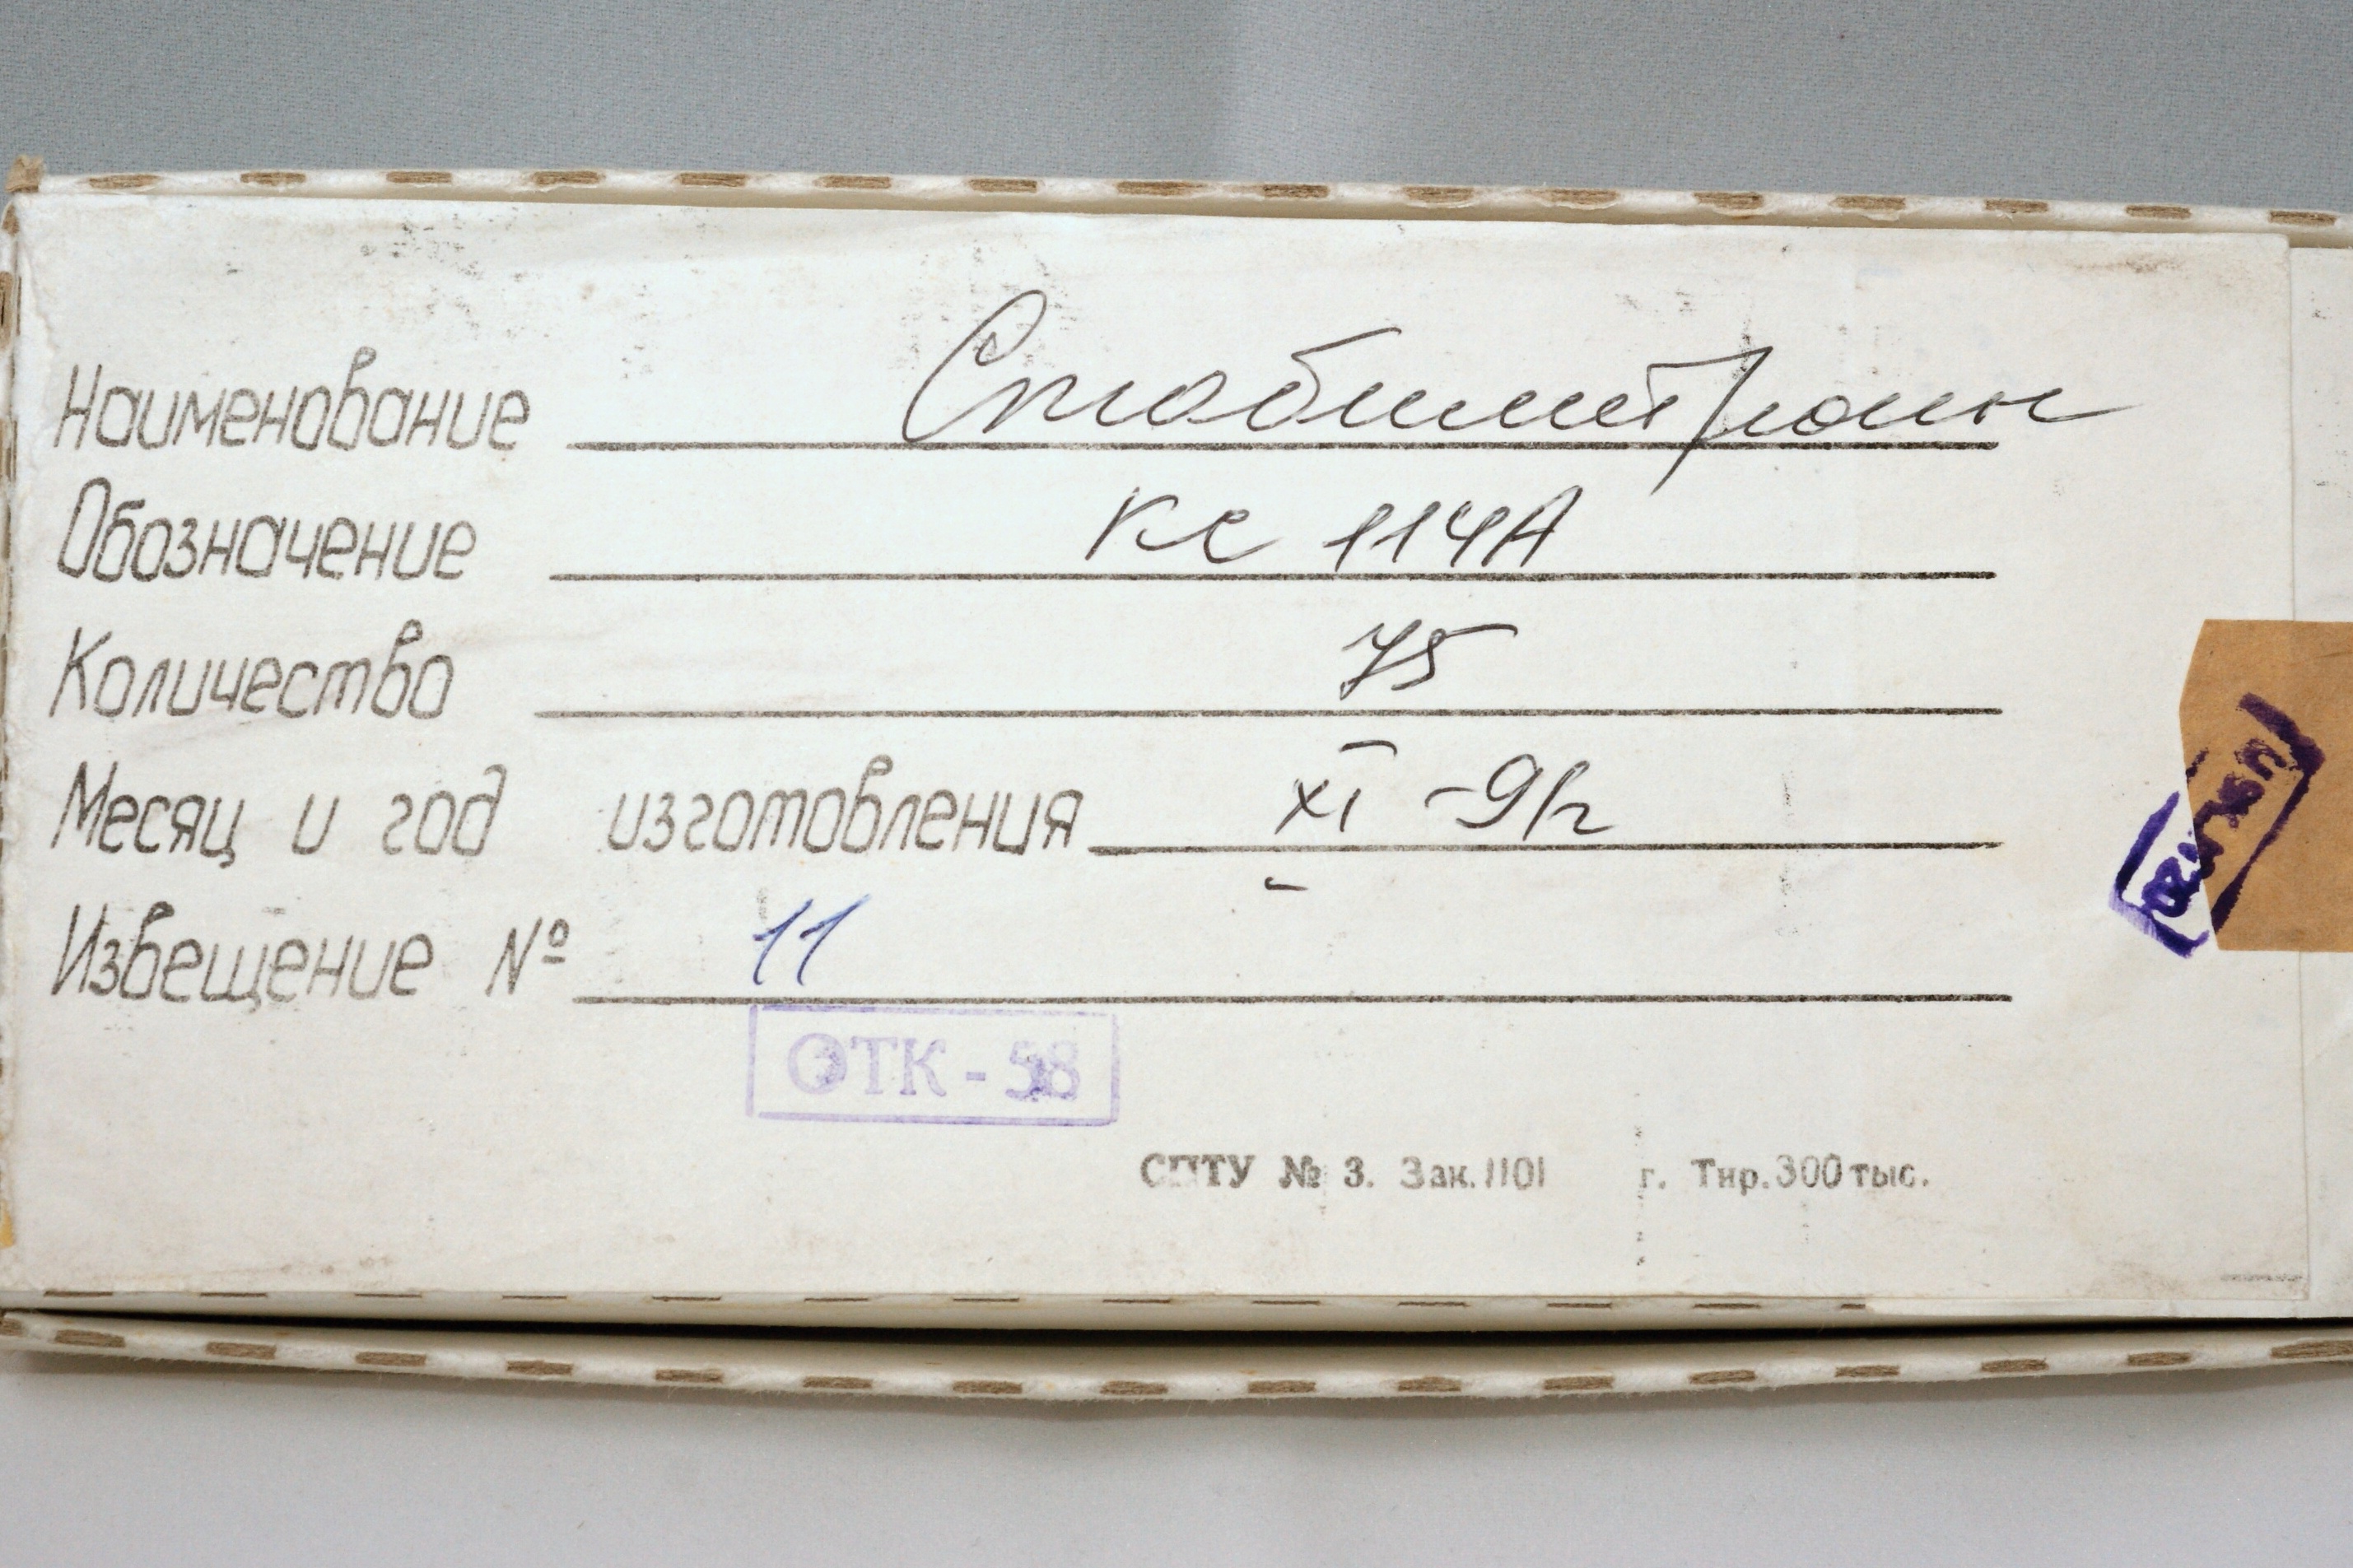 Наименование Стабилитрон
Обозначение КС 114А
Количество 75
Месяц и год изготовления XI -91г
Извещение № 11
ОТК - 58
СПТУ № 3. Зак. 1101 г. Тир. 300 тыс.